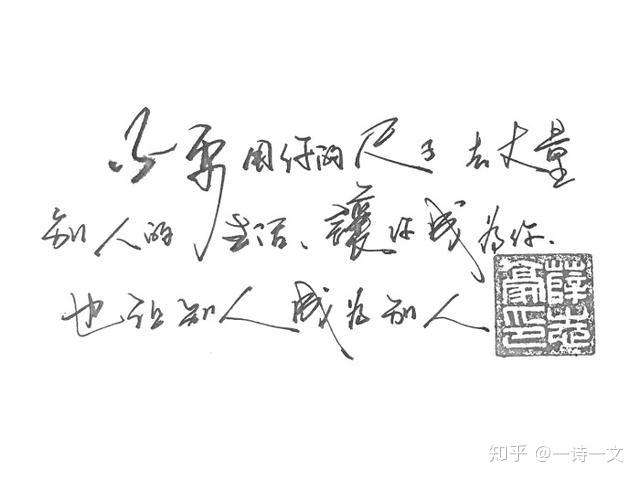 不要用你的尺子去丈量
别人的生活、讓你成为你.
也让别人成为别人
知乎 @一诗一文